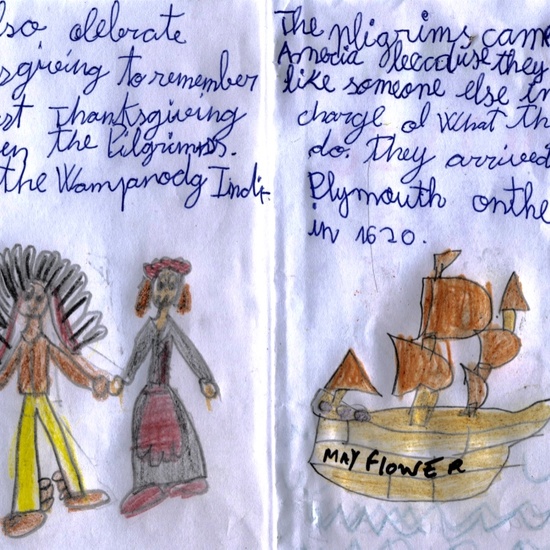 lso olebrate
sgiving to remember
st Thanksgiving
en the Pilgrimns.
the Wampanodg Indi
The pligrims came
Amecia beccause they
like someone else in
charge of what th
do. They arrived
Plymouth on the
in 1620.
MAY FLOWER